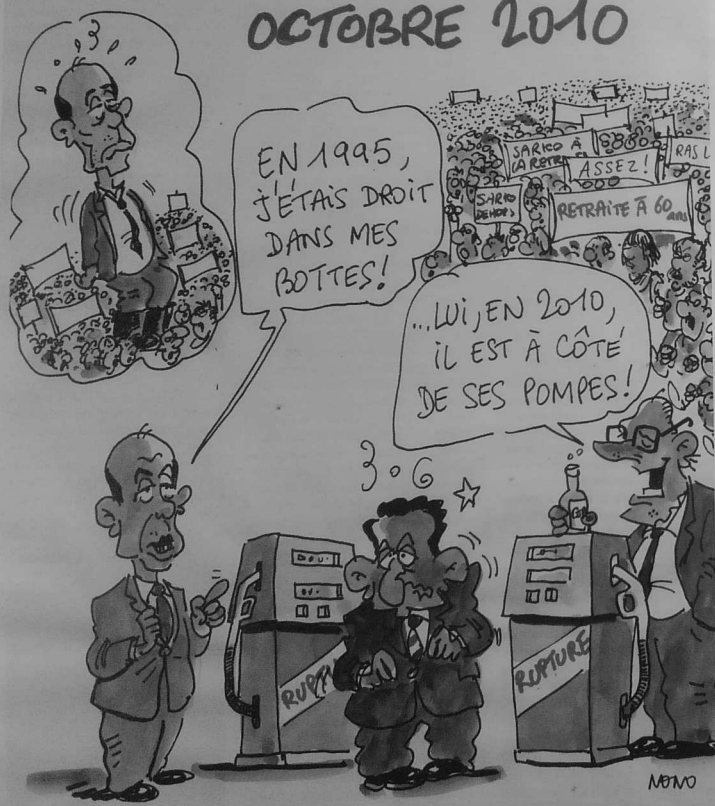 OCTOBRE 2010
EN 1995,
J'ÉTAIS DROIT
DANS MES
BOTTES!
SARKO À
LA RETR
ASSEZ!
RAS L
SARKO
DEHORS
RETRAITE À 60 ans
...LUI, EN 2010,
IL EST À CÔTÉ
DE SES POMPES!
RUPTU
RUPTURE
NONO